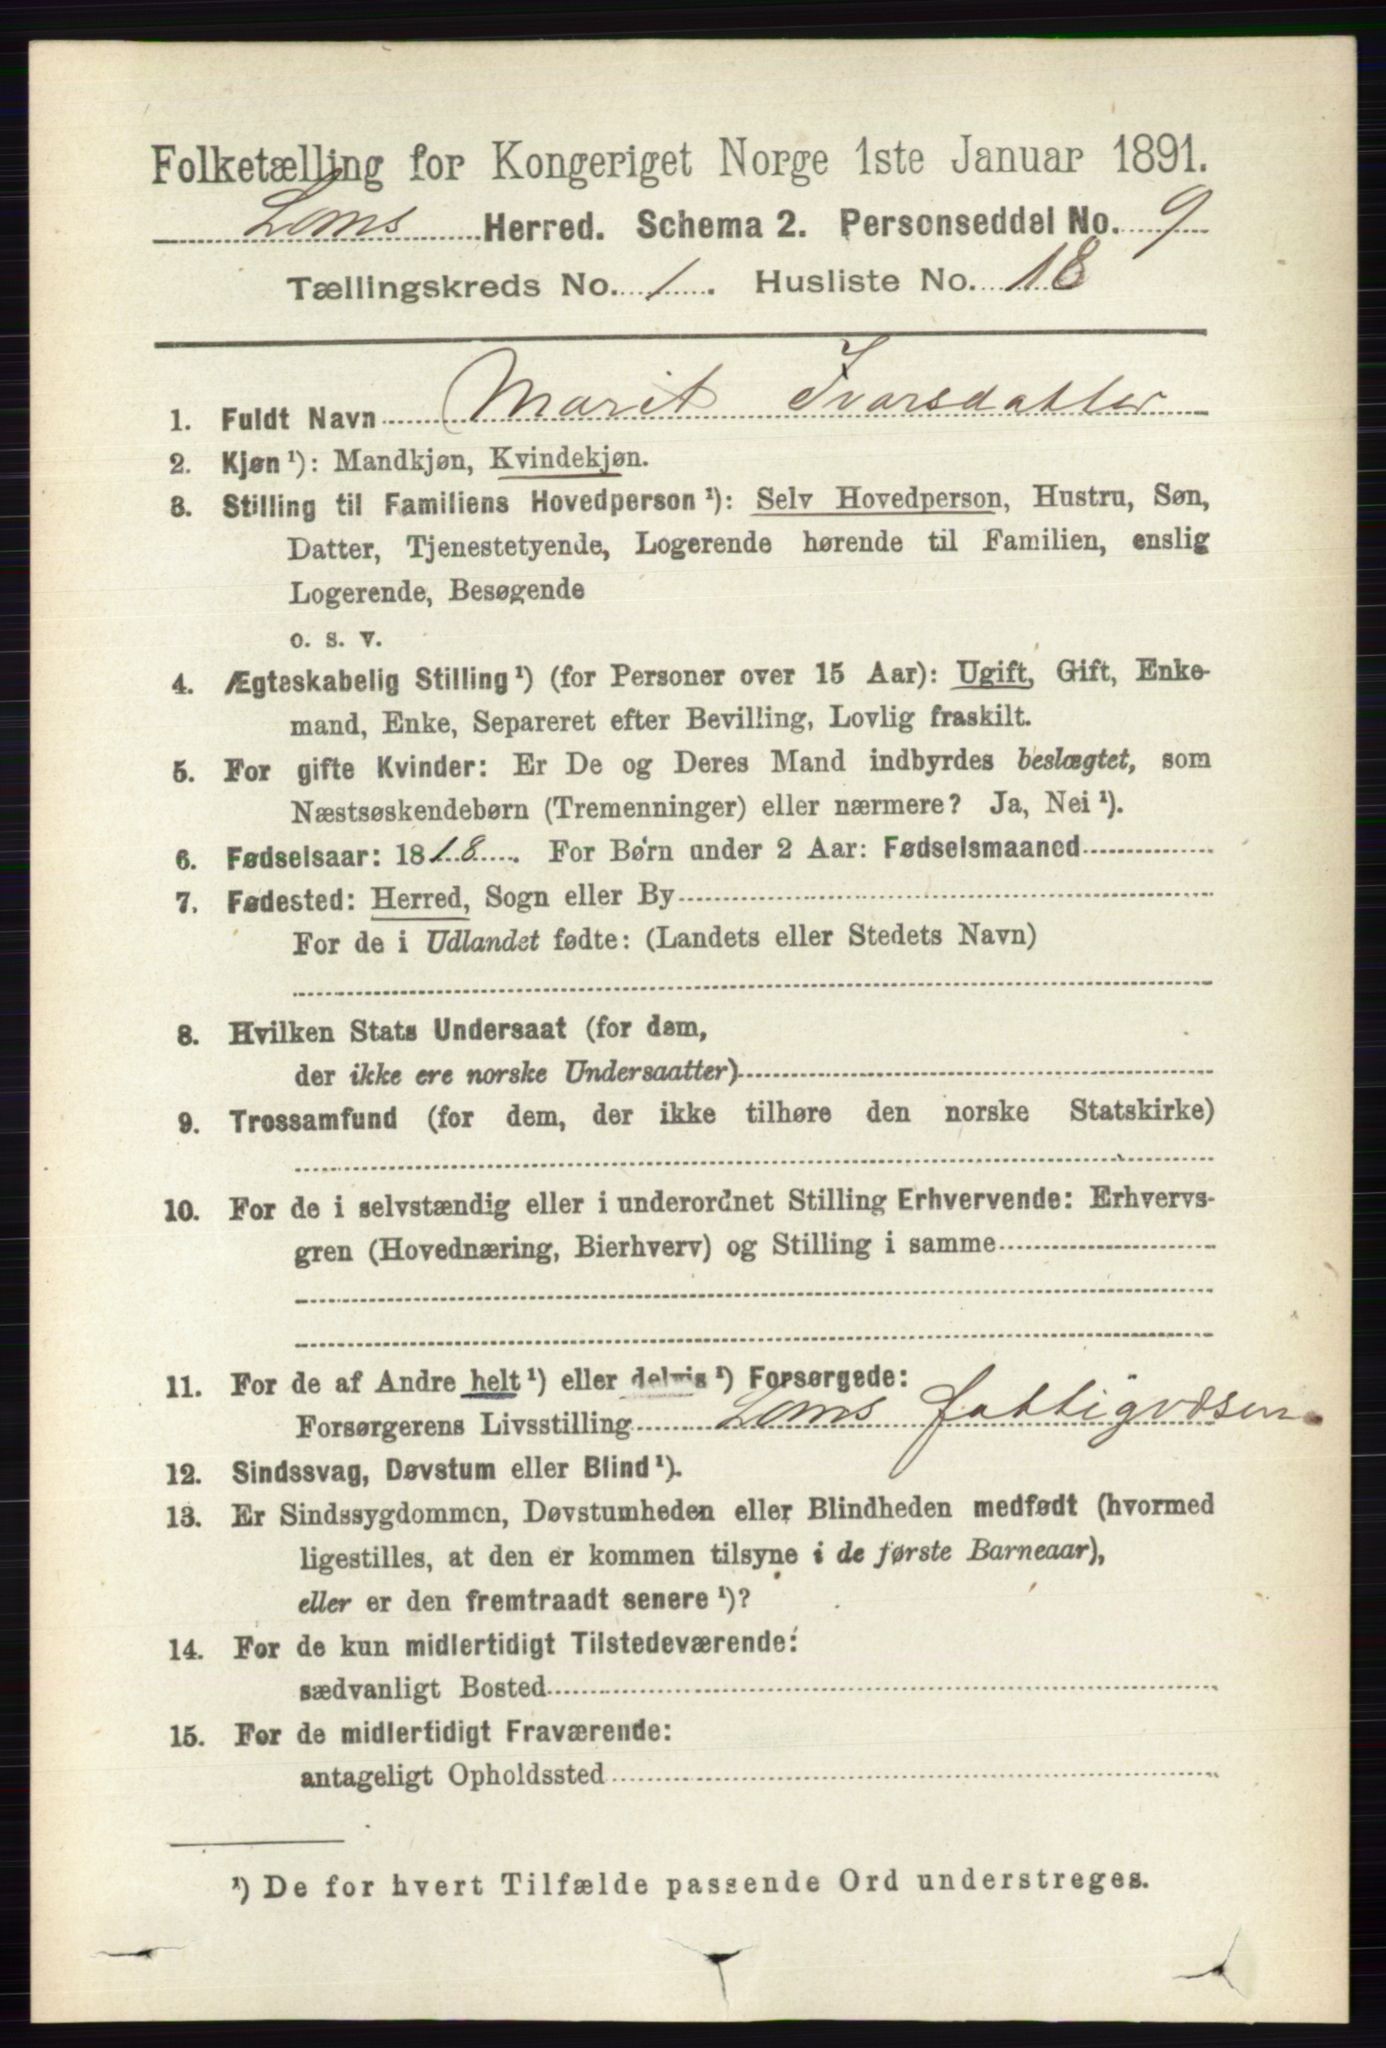 Folketælling for Kongeriget Norge 1ste Januar 1891.
Loms Herred. Schema 2. Personseddel No. 9
Tællingskreds No. 1. Husliste No. 18
1. Fuldt Navn Marit Ivarsdatter
2. Kjøn¹): Mandkjøn, Kvindekjøn.
3. Stilling til Familiens Hovedperson¹): Selv Hovedperson, Hustru, Søn,
Datter, Tjenestetyende, Logerende hørende til Familien, enslig
Logerende, Besøgende
o. s. v.
4. Ægteskabelig Stilling¹) (for Personer over 15 Aar): Ugift, Gift, Enke-
mand, Enke, Separeret efter Bevilling, Lovlig fraskilt.
5. For gifte Kvinder: Er De og Deres Mand indbyrdes beslægtet, som
Næstsøskendebørn (Tremenninger) eller nærmere? Ja, Nei¹).
6. Fødselsaar: 1818. For Børn under 2 Aar: Fødselsmaaned
7. Fødested: Herred, Sogn eller By
For de i Udlandet fødte: (Landets eller Stedets Navn)
8. Hvilken Stats Undersaat (for dem,
der ikke ere norske Undersaatter)
9. Trossamfund (for dem, der ikke tilhøre den norske Statskirke)
10. For de i selvstændig eller i underordnet Stilling Erhvervende: Erhvervs-
gren (Hovednæring, Bierhverv) og Stilling i samme
11. For de af Andre helt¹) eller delvis¹) Forsørgede:
Forsørgerens Livsstilling Loms fattigvæsen
12. Sindssvag, Døvstum eller Blind¹).
13. Er Sindssygdommen, Døvstumheden eller Blindheden medfødt (hvormed
ligestilles, at den er kommen tilsyne i de første Barneaar),
eller er den fremtraadt senere¹)?
14. For de kun midlertidigt Tilstedeværende:
sædvanligt Bosted
15. For de midlertidigt Fraværende:
antageligt Opholdssted
¹) De for hvert Tilfælde passende Ord understreges.